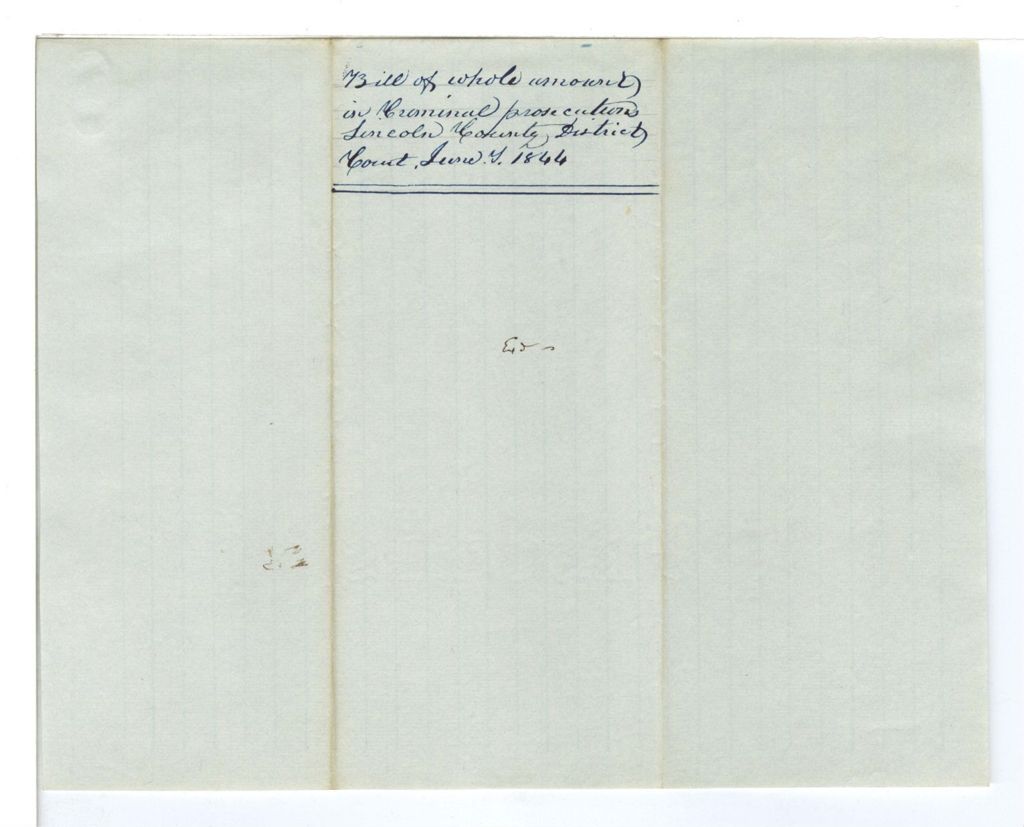 Bill of whole amount
in Criminal prosecutions
Lincoln County, District
Court, June T. 1844
Exd